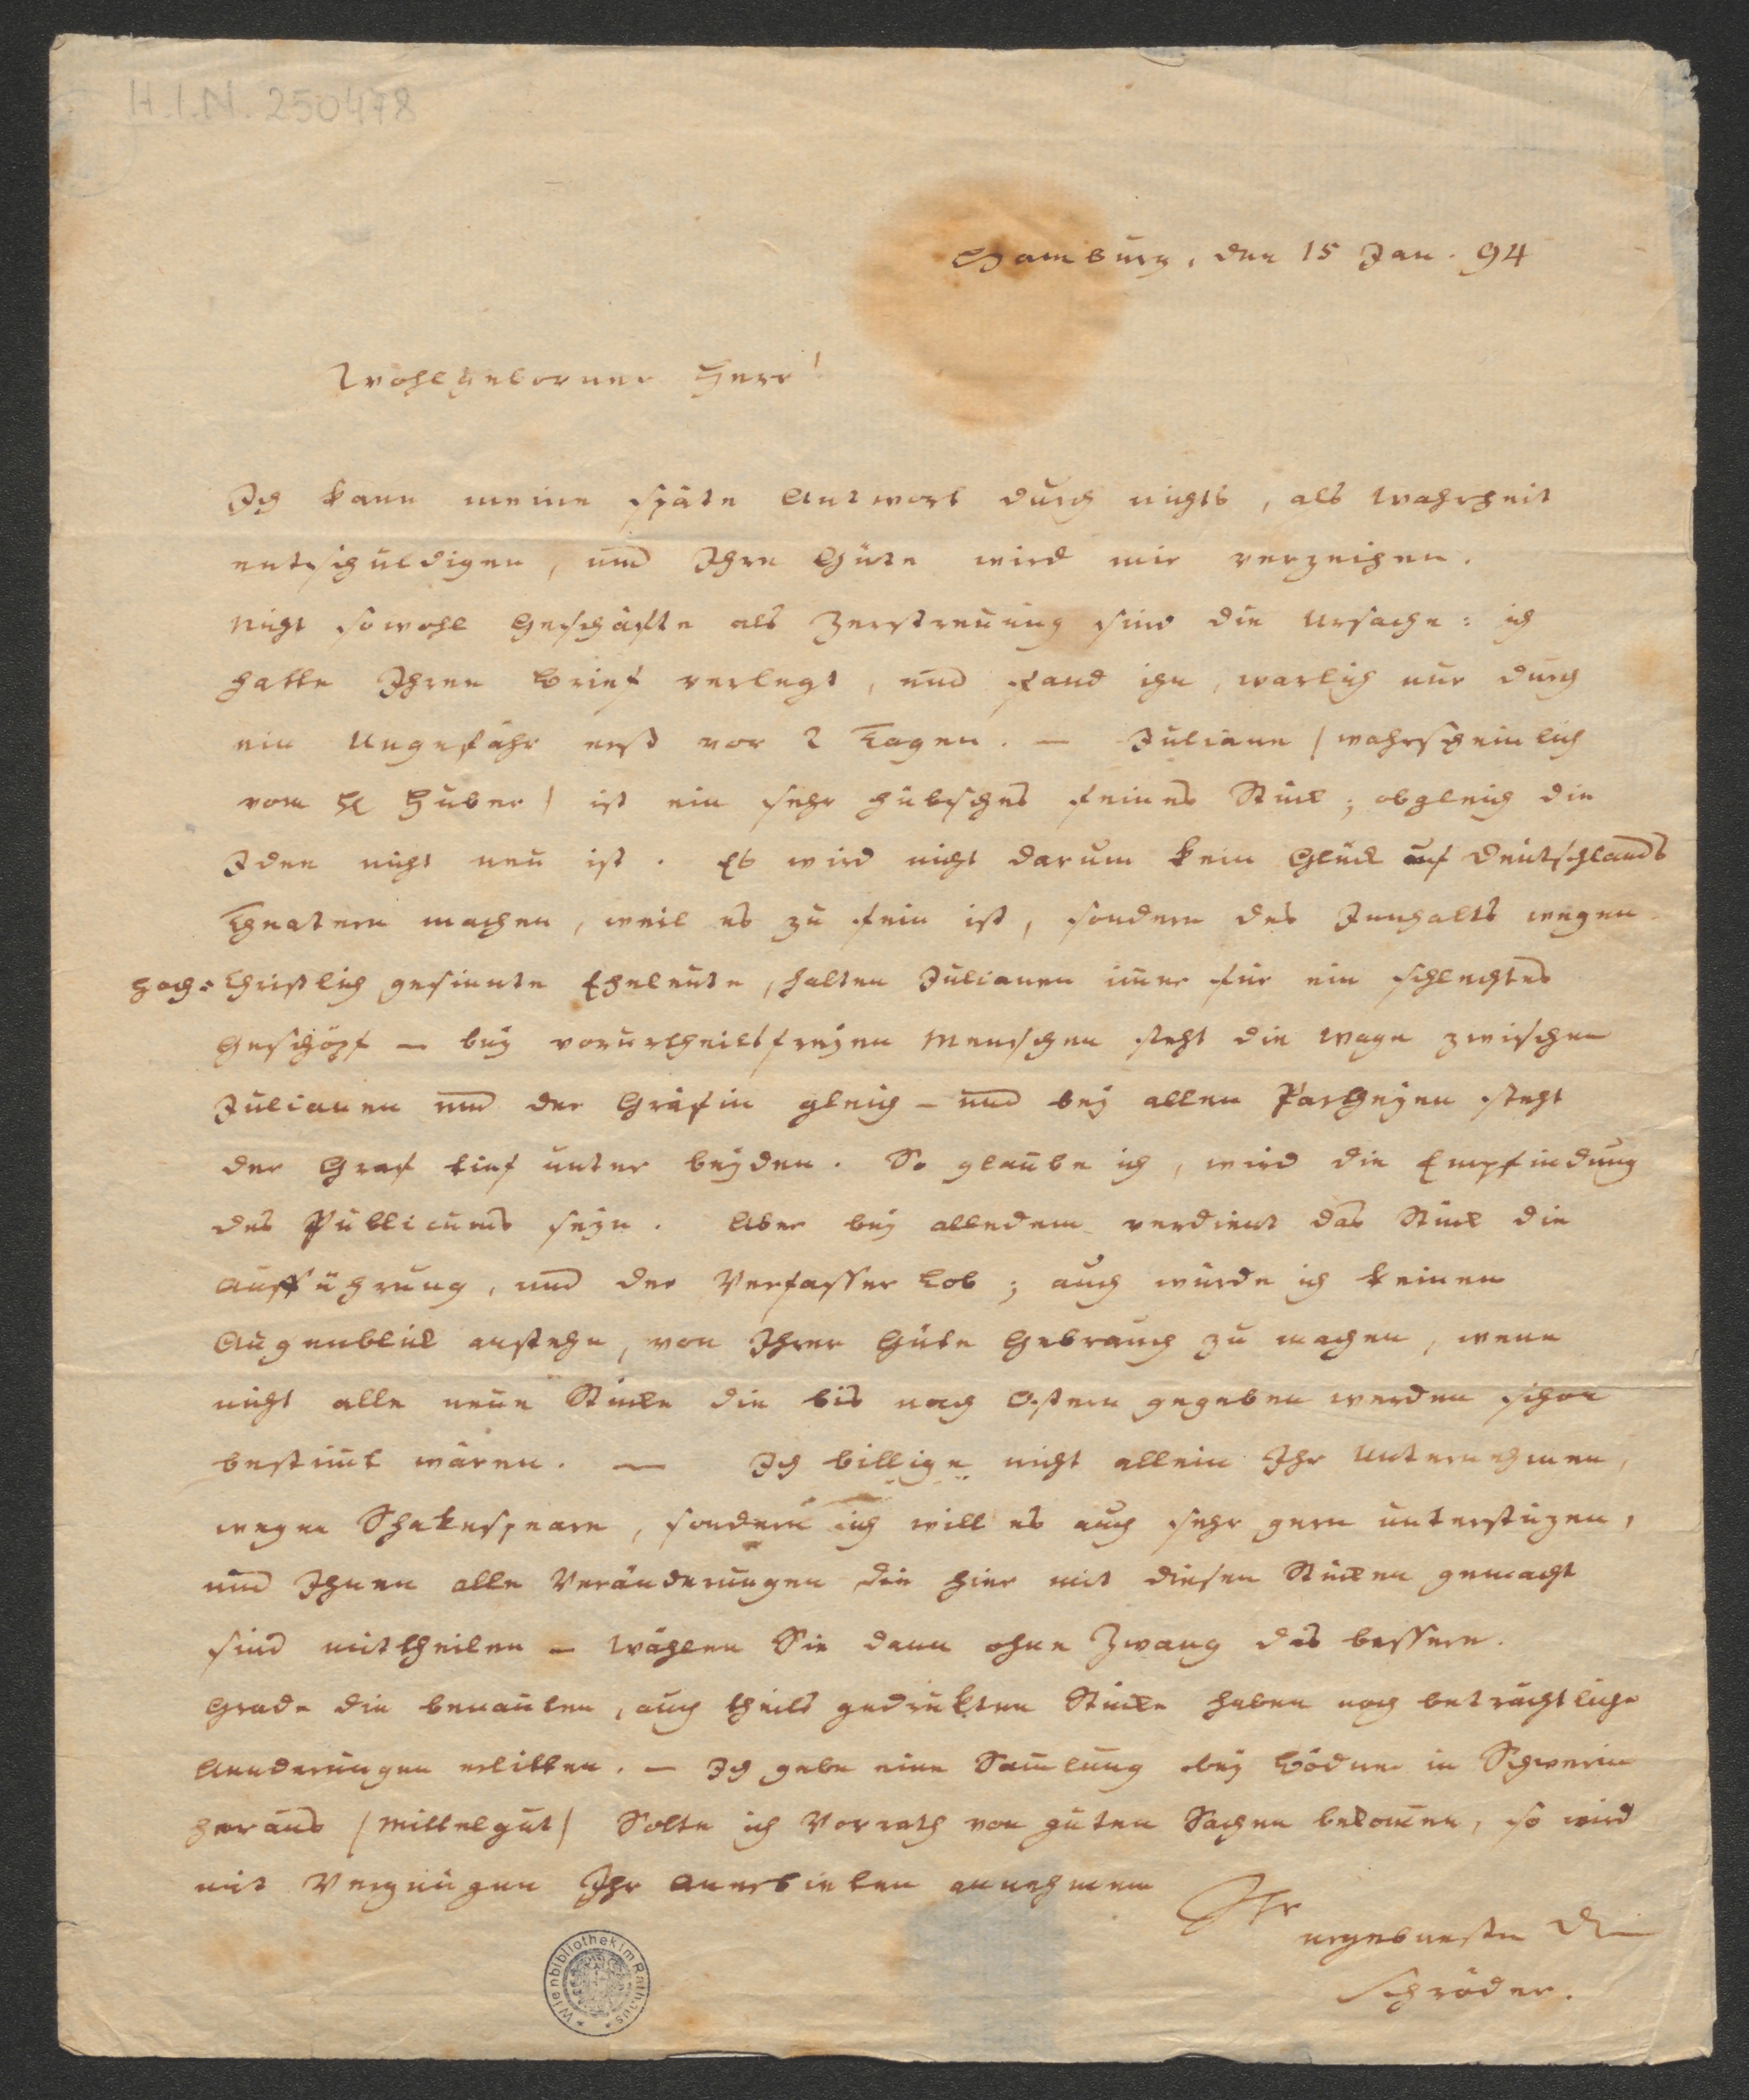 H.I.N. 250478
Hamburg, den 15 Jan. 94
Wohlgeborner Herr!
Ich kann meine späte Antwort durch nichts, als Wahrheit
entschuldigen, und Ihre Güte wird mir verzeihen.
Nicht sowohl Geschäfte als Zerstreuung sind die Ursache: ich
hatte Ihren Brief verlegt, und fand ihn, warlich nur durch
ein Ungefähr erst vor 2 Tagen. — Juliane /wahrscheinlich
vom H Huber/ ist ein sehr hübsches feines Stück; obgleich die
Idee nicht neu ist. Es wird nicht darum kein Glück auf Deutschlands
Theatern machen, weil es zu fein ist, sondern des Innhalts wegen
hoch-Christlich gesinnte Eheleute, halten Julianen im̄er für ein schlechtes
Geschöpf — bey vorurtheilsfreyen Menschen steht die Wage zwischen
Julianen und der Gräfin gleich — und bey allen Partheyen steht
der Graf tief unter beyden. So glaube ich, wird die Empfindung
des Publicums seyn. Aber bey alledem verdient das Stück die
Aufführung, und der Verfasser Lob; auch würde ich keinen
Augenblick anstehn, von Ihrer Güte Gebrauch zu machen, wenn
nicht alle neue Stücke die bis nach Ostern gegeben werden schon
bestim̄t wären. — Ich billige nicht allein Ihr Unternehmen,
wegen Shakespeare, sondern ich will es auch sehr gern unterstüzen,
und Ihnen alle Veränderungen die hier mit diesen Stücken gemacht
sind mittheilen — Wählen Sie dann ohne Zwang das bessere.
Grade die benanten, auch theils gedrukten Stücke haben noch beträchtliche
Aenderungen erlitten. — Ich gebe eine Sam̄lung bey Bödner in Schwerin
heraus /Mittelgut/ Solte ich Vorrath von guten Sachen bekom̄en, so wird
mit Vergnügen Ihr Anerbieten annehmen
Ihr
ergebenster
Schröder.
Wienbibliothek im Rathaus